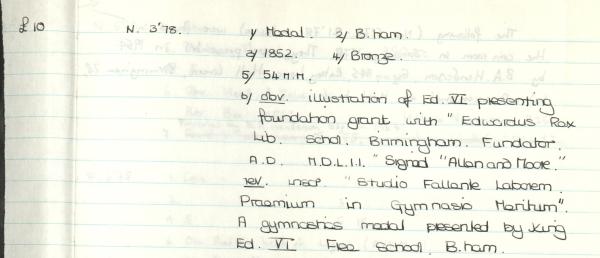 £10 N. 3'78. 1/ Medal. 2/ B.ham.
3/ 1852. 4/ Bronze.
5/ 54 M.M.
6/ obv. illustration of Ed. VI presenting
foundation grant with "Edwardus Rex
Lib. Schol. Birmingham. Fundator.
A.D. M.D.L.I.I." Signed "Allan and Moore."
rev. inscp. "Studio Fallante Laborem.
Praemium in Gymnasio Meritum".
A gymnastics medal presented by King
Ed. VI Free School, B.ham.